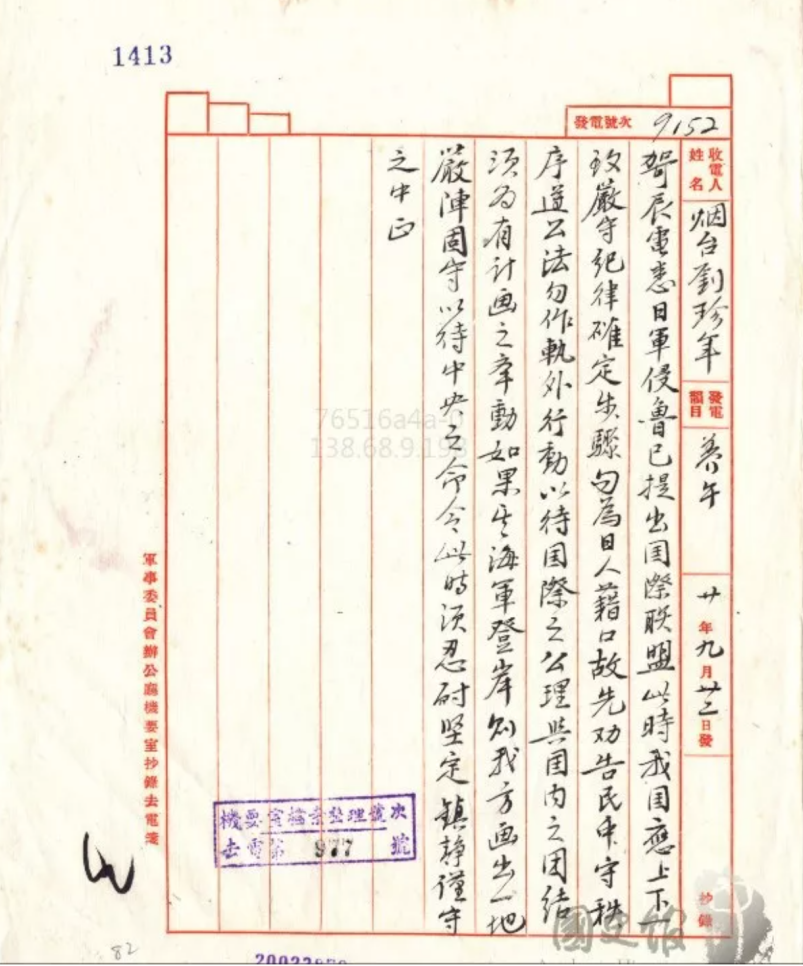 1413
發電號次 9152
收電人姓名 烟台劉珍年 發電韻目 養午 廿年九月廿二日發 抄錄
哿辰電悉日軍侵魯已提出囯際联盟此時我囯應上下一
致嚴守紀律確定步驟勿為日人藉口故先劝告民中守秩
序遵公法勿作軌外行動以待囯際之公理與囯内之团结
須为有计画之举動如果其海軍登岸则我方画出一地
嚴陣固守以待中央之命令此時須忍耐坚定鎮静謹守
之中正
機要室檔案整理號次
去電第 977 號
軍事委員會辦公廳機要室抄錄去電箋
82
76516a4a-0
138.68.9.193
國史館